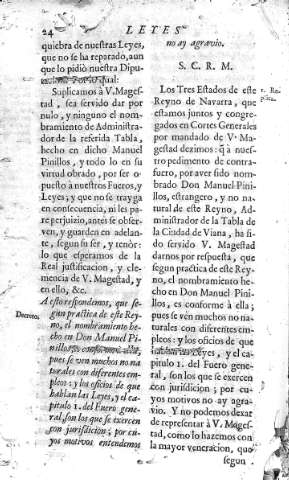 24
LEYES
quiebra de nuestras Leyes,
que no se ha reparado, aun
que lo pidiò nuestra Dipu-
qual:
Suplicamos à V. Mages-
tad, sea servido dar por
nulo, y ninguno el nom-
bramiento de Administra-
dor de la referida Tabla,
hecho en dicho Manuel
Pinillos, y todo lo en su
virtud obrado, por ser o-
puesto à nuestros Fueros, y
Leyes; y que no se trayga
en consequencia, ni les pa-
re perjuizio, antes se obser-
ven, y guarden en adelan-
te, segun su ser, y tenòr:
lo que esperamos de la
Real justificacion, y cle-
mencia de V. Magestad, y
en ello, &c.
Decreto.
A esto respondemos, que se-
gun practica de este Rey-
no, el nombramiento he-
cho en Don Manuel Pi-
nillos es conforme à ella;
pues se vèn muchos no na-
turales con diferentes em-
pleos; y los oficios de que
hablan las Leyes, y el ca-
pitulo 1. del Fuero gene-
ral, son los que se exercen
con jurisdicion; por cu-
yos motivos entendemos
no ay agravio.
S. C. R. M.
Los Tres Estados de este
Reyno de Navarra, que
estamos juntos y congre-
gados en Cortes Generales
por mandado de V. Ma-
gestad dezimos: q̃ à nues-
tro pedimento de contra-
fuero, por aver sido nom-
brado Don Manuel Pini-
llos, estrangero, y no na-
tural de este Reyno, Ad-
ministrador de la Tabla de
la Ciudad de Viana, ha si-
do servido V. Magestad
darnos por respuesta, que
segun practica de este Rey-
no, el nombramiento hecho
en Don Manuel Pini-
llos, es conforme à ella;
pues se vèn muchos no na-
turales con diferentes em-
pleos: y los oficios de que
hablan las Leyes, y el ca-
pitulo 1. del Fuero gene-
ral, son los que se exercen
con jurisdicion; por cu-
yos motivos no ay agra-
vio. Y no podemos dexar
de representar à V. Mages-
tad, como lo hazemos con
la mayor veneracion, quo
segun